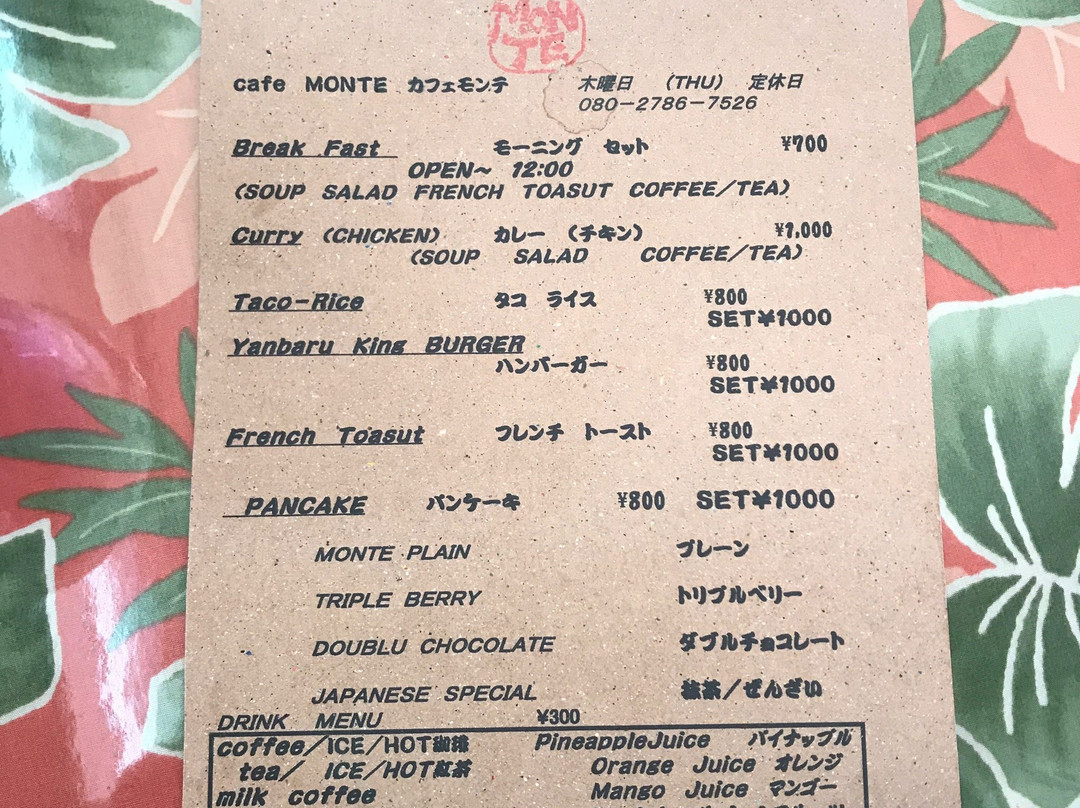 MONTE
cafe MONTE カフェモンテ 木曜日 (THU) 定休日
080-2786-7526
Break Fast モーニング セット ¥700
OPEN~ 12:00
(SOUP SALAD FRENCH TOASUT COFFEE/TEA)
Curry (CHICKEN) カレー (チキン) ¥1,000
(SOUP SALAD COFFEE/TEA)
Taco-Rice タコ ライス ¥800
SET¥1000
Yanbaru King BURGER
ハンバーガー ¥800
SET¥1000
French Toasut フレンチ トースト ¥800
SET¥1000
PANCAKE パンケーキ ¥800 SET¥1000
MONTE PLAIN プレーン
TRIPLE BERRY トリプルベリー
DOUBLU CHOCOLATE ダブルチョコレート
JAPANESE SPECIAL 抹茶/ぜんざい
DRINK MENU ¥300
coffee/ICE/HOT珈琲 PineappleJuice パイナップル
tea/ ICE/HOT紅茶 Orange Juice オレンジ
milk coffee Mango Juice マンゴー